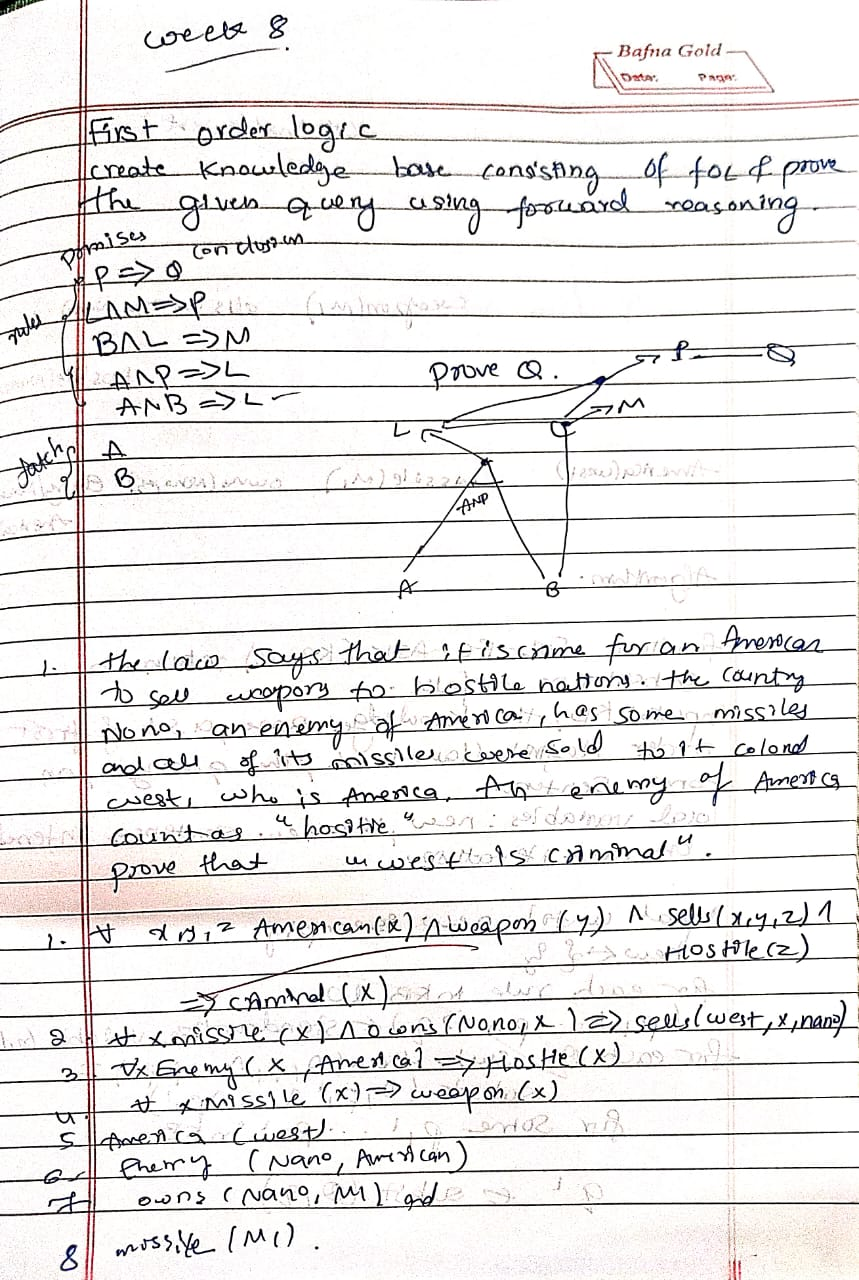 week 8
Bafna Gold
Date: Page:
First order logic
create knowledge base consisting of FOL & prove
the given query using forward reasoning.
premises conclusion
P => Q
rules L∧M=>P
B∧L =>M
A∧P=>L
A∧B =>L
Prove Q.
P Q
M
L
facts A
B
A∧P
A B
1. the law says that it is crime for an American
to sell weapons to hostile nations. the country
Nono, an enemy of America, has some missiles
and all of its missiles were sold to it colonel
west, who is America, An enemy of America
count as "hostile"
prove that "west is criminal".
1. ∀ x,y,z American(x) ∧ weapon (y) ∧ sells(x,y,z) ∧
Hostile(z)
=> criminal (x)
2 ∀ x missile (x) ∧ owns (Nono, x) => sells(west, x, nano)
3 ∀x Enemy (x, America) => Hostile (x)
4. ∀ x missile (x) => weapon (x)
5 America (west).
6 Enemy (Nano, American)
7 owns (Nano, M1) and
8 missile (M1).